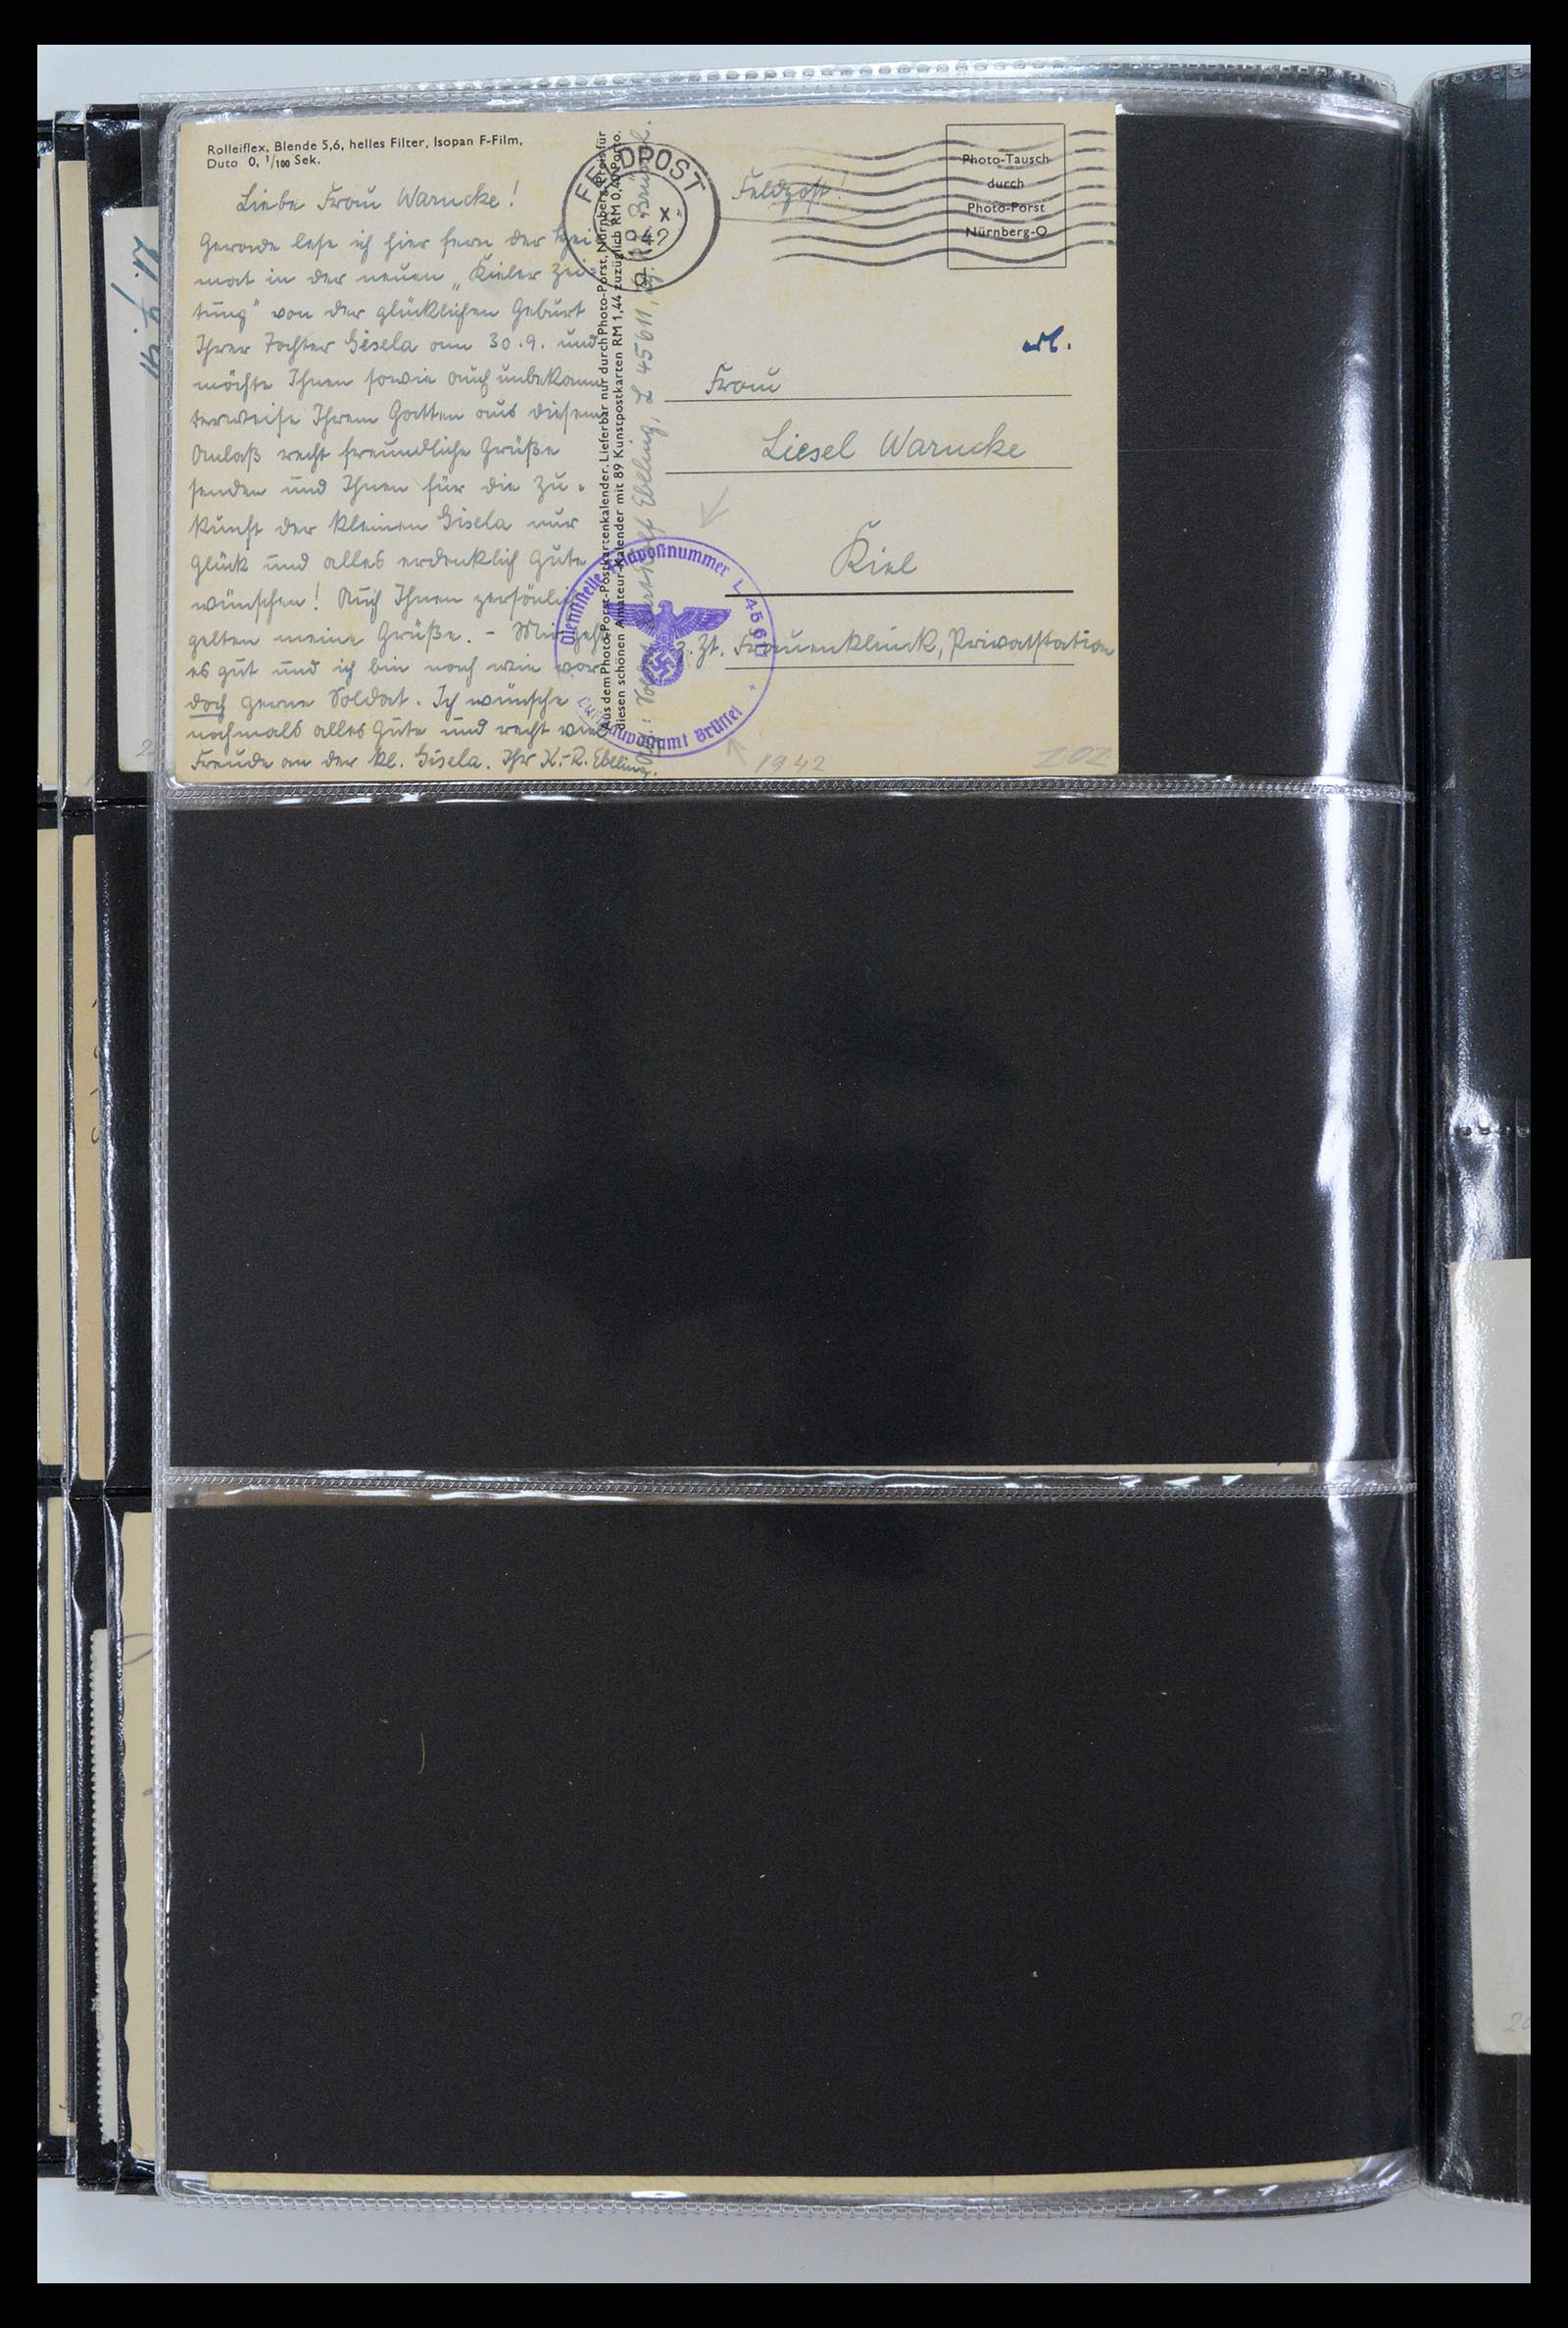 Rolleiflex, Blende 5,6, helles Filter, Isopan F-Film,
Duto 0, 1/100 Sek.
Liebe Frau Warncke!
Gerade lese ich hier fern der Hei-
mat in der neuen „Kieler Zei-
tung“ von der glücklichen Geburt
Ihrer Tochter Gisela am 30.9. und
möchte Ihnen sowie auch unbekann-
terweise Ihrem Gatten aus diesem
Anlaß recht freundliche Grüße
senden und Ihnen für die Zu-
kunft der kleinen Gisela nur
Glück und alles erdenklich Gute
wünschen! Auch Ihnen persönlich
gelten meine Grüße. - Mir geht
es gut und ich bin nach wie vor
doch gerne Soldat. Ich wünsche
nochmals alles Gute und recht viel
Freude an der kl. Gisela. Ihr K.-R. Ebeling.
Aus dem Photo-Porst-Postkartenkalender. Lieferbar nur durch Photo-Porst, Nürnberg. Preis für
diesen schönen Amateur-Kalender mit 89 Kunstpostkarten RM 1,44 zuzüglich RM 0,40 Porto.
Ebeling, L 45611, Brüssel.
FELDPOST
Feldpost!
Photo-Tausch
durch
Photo-Porst
Nürnberg-O
erl.
Frau
Liesel Warncke
Kiel
z. Zt. Frauenklinik, Privatstation
Dienststelle Feldpostnummer L 45611
Luftgaupostamt Brüssel
1942